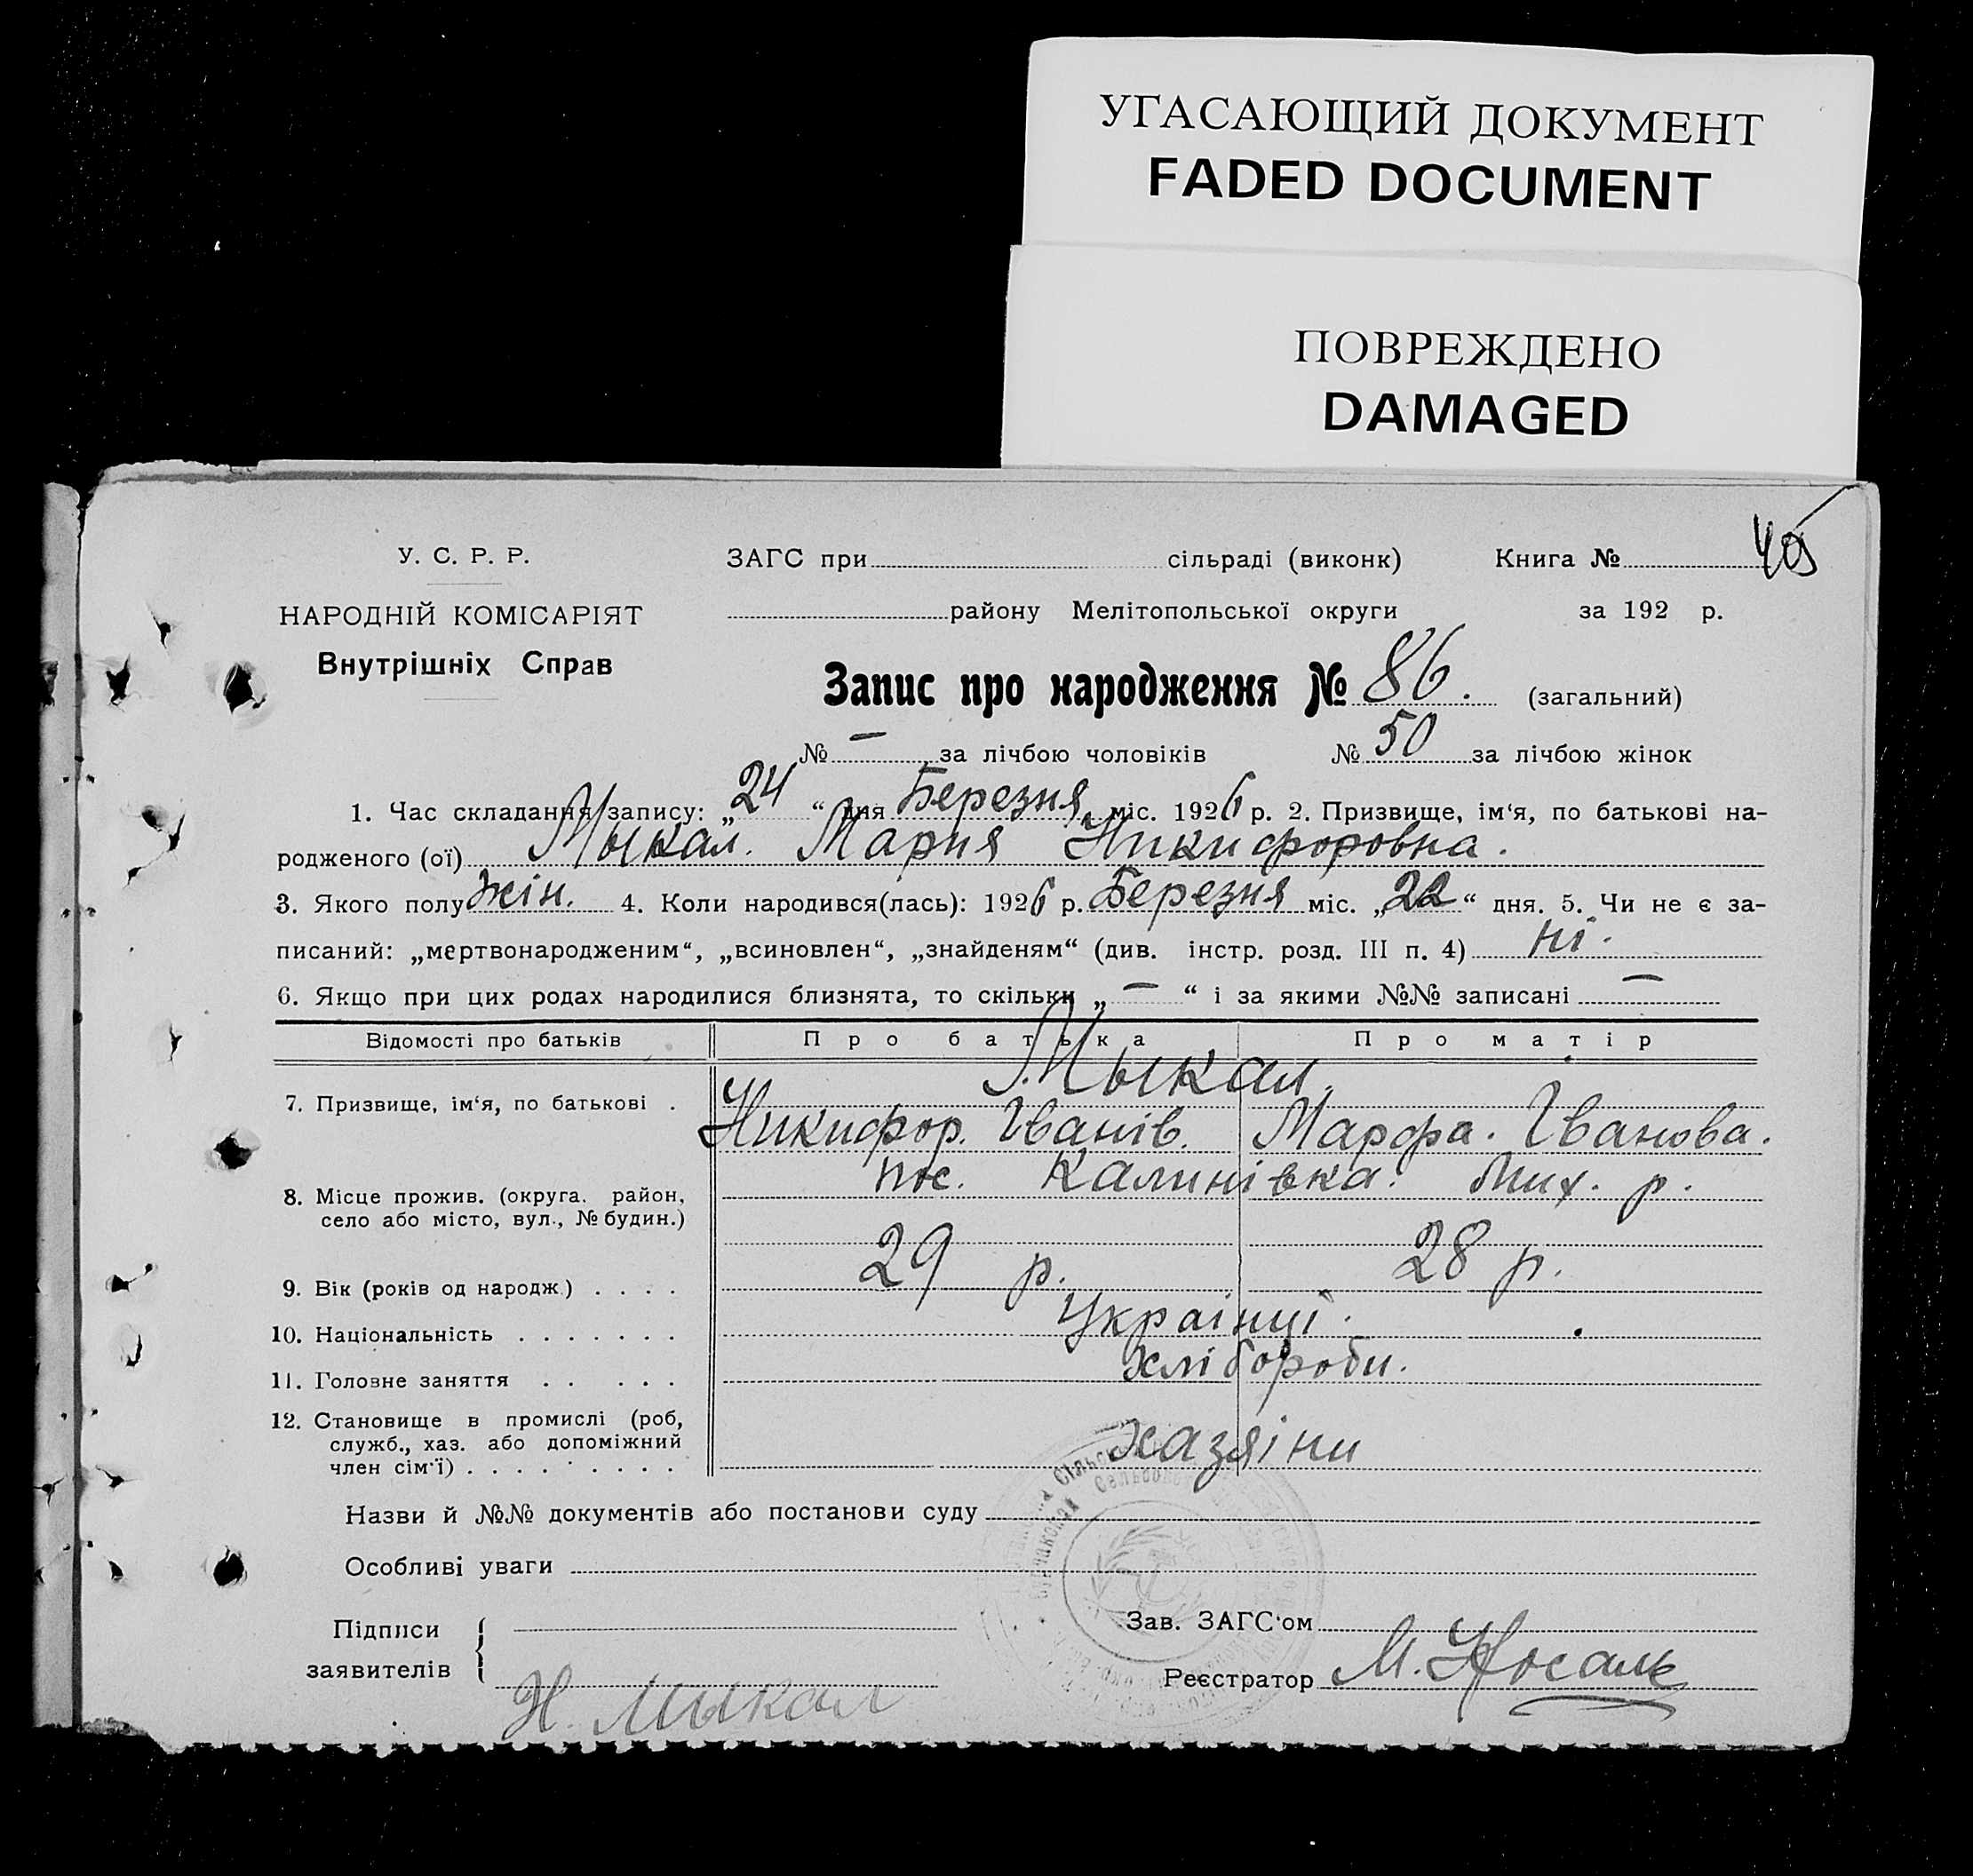 УГАСАЮЩИЙ ДОКУМЕНТ
FADED DOCUMENT
ПОВРЕЖДЕНО
DAMAGED
У. С. Р. Р. ЗАГС при сільраді (виконк) Книга № 40
НАРОДНІЙ КОМІСАРІЯТ району Мелітопольської округи за 192 р.
Внутрішніх Справ
Запис про народження № 86. (загальний)
№ — за лічбою чоловіків № 50 за лічбою жінок
1. Час складання запису: „24“ дня Березня міс. 1926 р. 2. Призвище, ім‘я, по батькові на-
родженого (ої) Мыкал. Мария Никифоровна.
3. Якого полу жін. 4. Коли народився(лась): 1926 р. Березня міс. „22“ дня. 5. Чи не є за-
писаний: „мертвонародженим“, „всиновлен“, „знайденям“ (див. інстр. розд. III п. 4) ні.
6. Якщо при цих родах народилися близнята, то скільки „—“ і за якими №№ записані —
Відомості про батьків Про батька Про матір
Мыкал.
7. Призвище, ім‘я, по батькові . Никифор. Іванів. Марфа. Іванова.
пос. Калинівка. Мих. р.
8. Місце прожив. (округа, район,
село або місто, вул., № будин.)
9. Вік (років од народж.) . . . . 29 р. 28 р.
10. Національність . . . . . . . Українці.
11. Головне заняття . . . . . Хлібороби.
12. Становище в промислі (роб,
служб., хаз. або допоміжний Хазяіни
член сім‘ї) . . . . . . . . .
Назви й №№ документів або постанови суду
Особливі уваги
Підписи Зав. ЗАГС‘ом
заявителів Реєстратор М. Носаль
Н. Мыкал